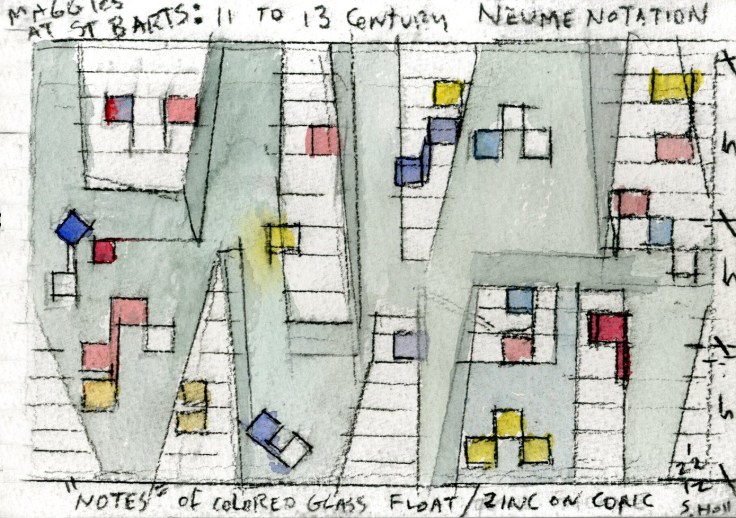 MAGGIES
AT ST BARTS: 11 TO 13 CENTURY NEUME NOTATION
"NOTES" OF COLORED GLASS FLOAT / ZINC ON CONC
S. Holl